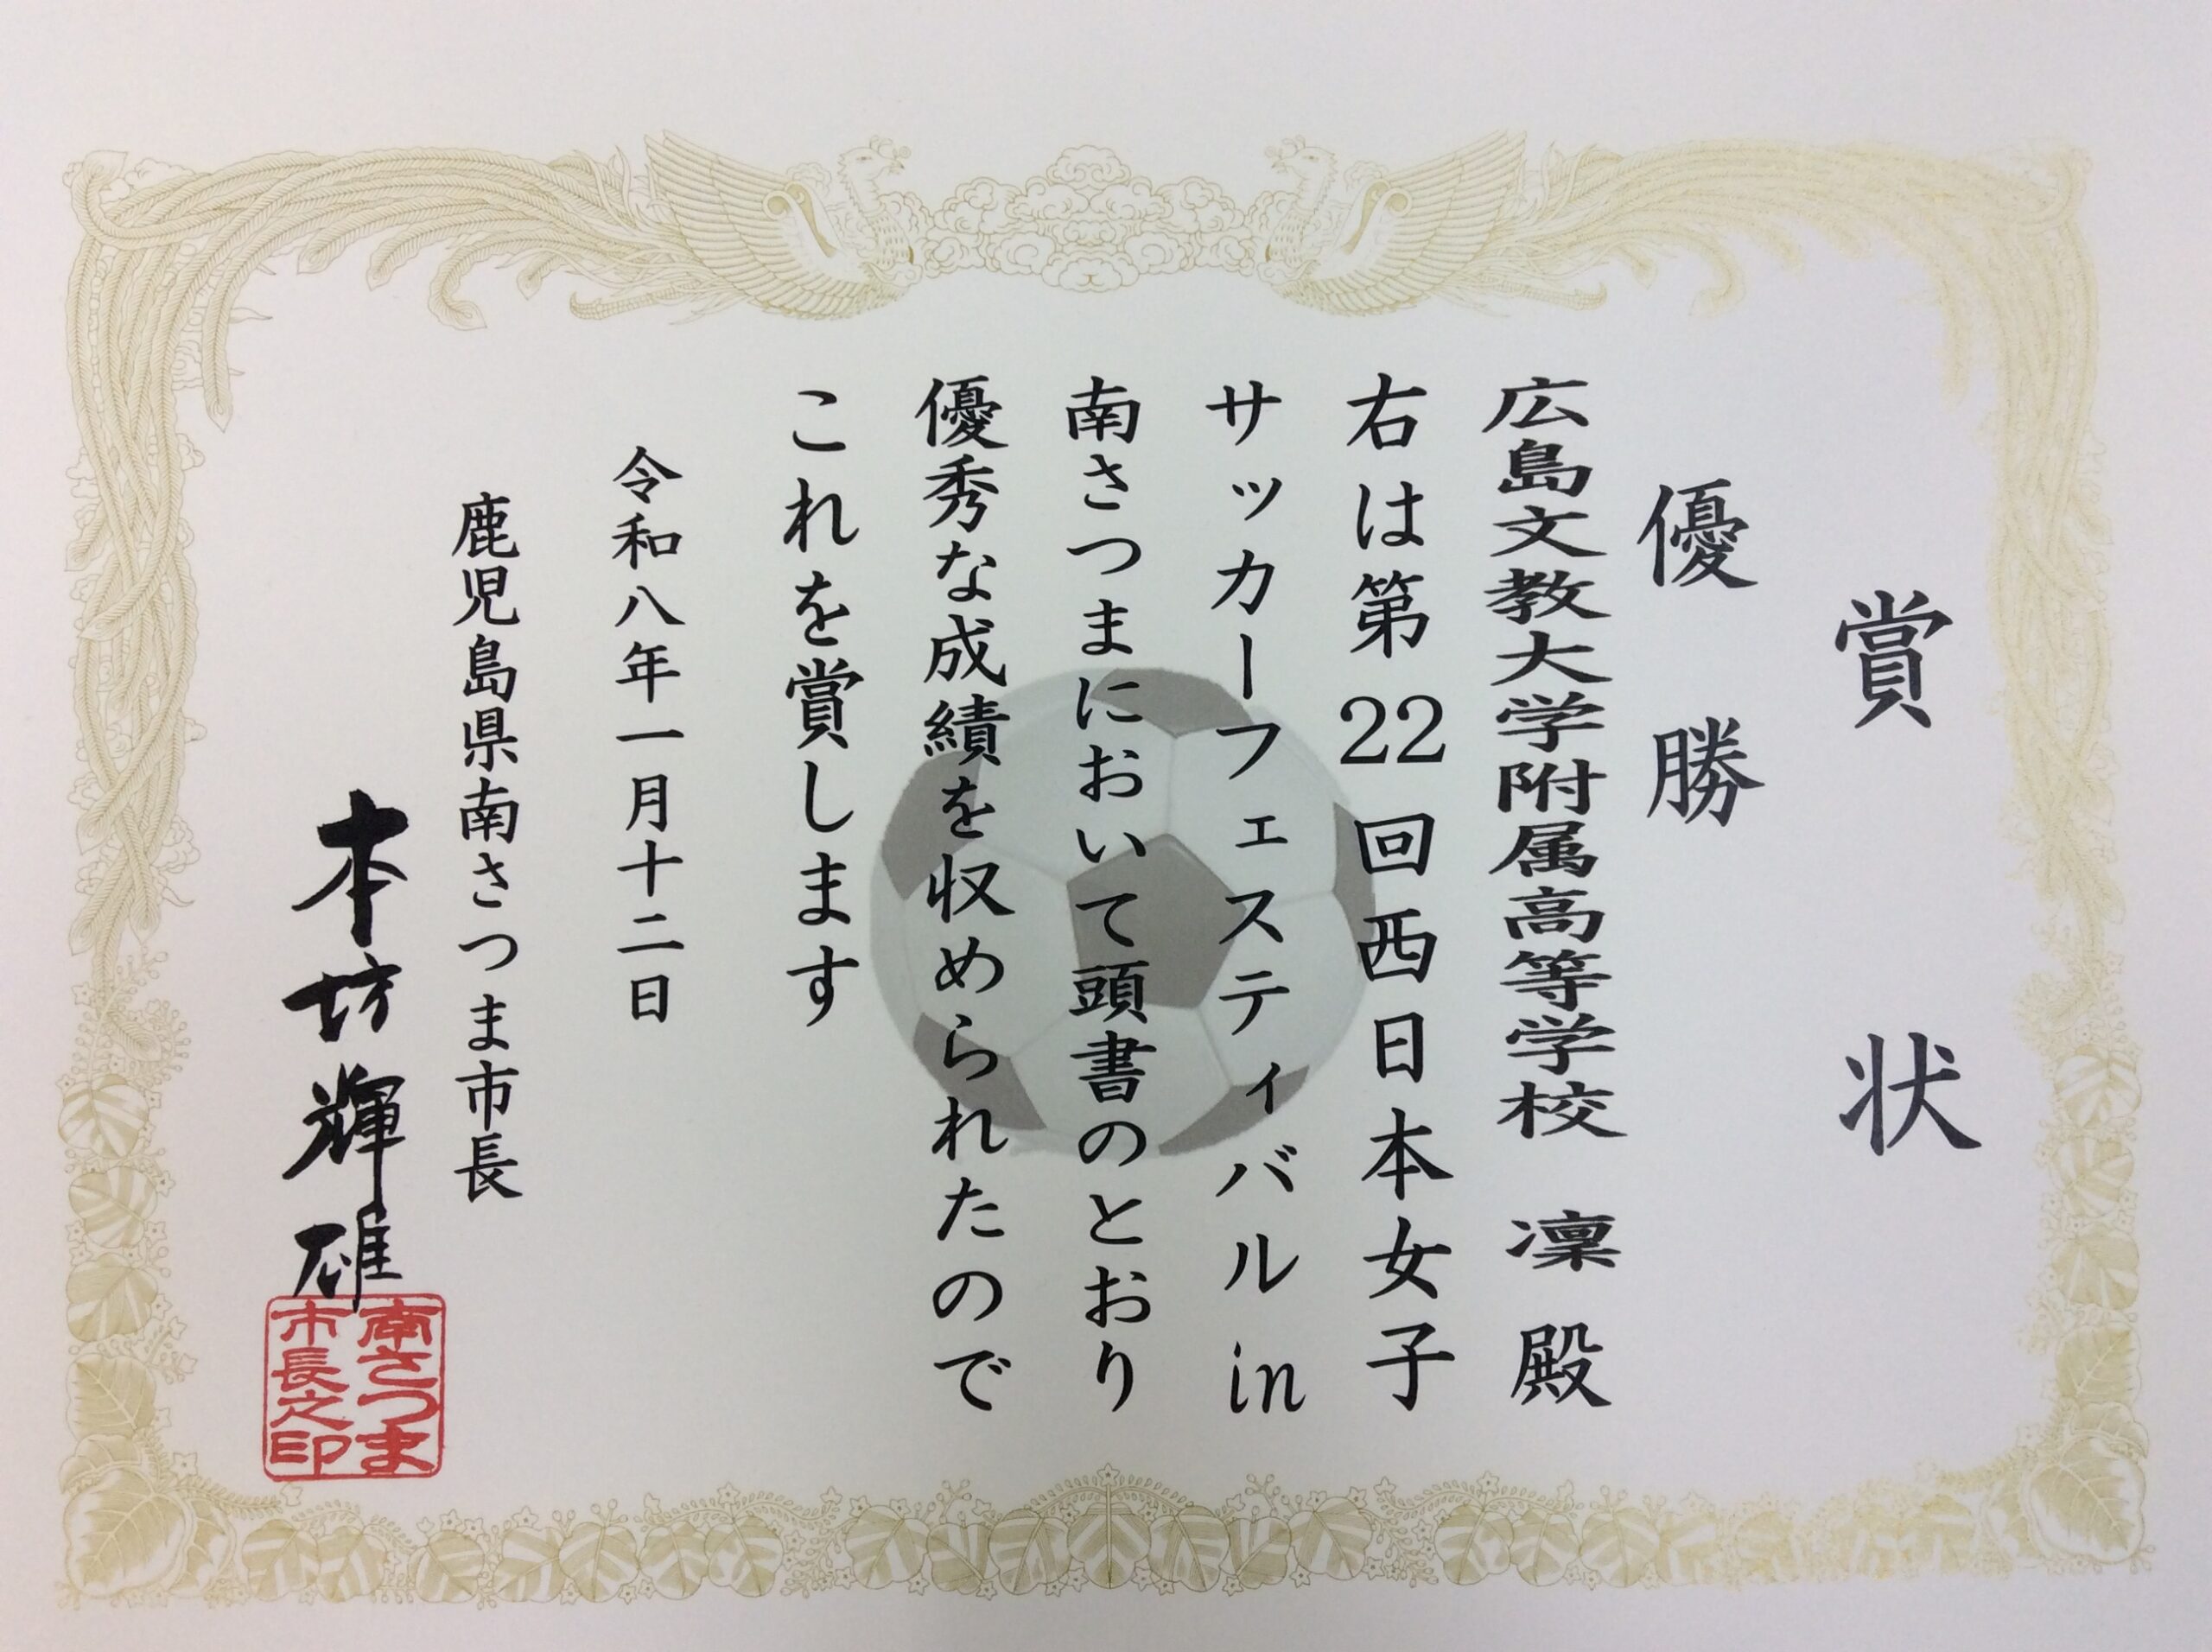 賞状
優勝
広島文教大学附属高等学校 凜 殿
右は第22回西日本女子
サッカーフェスティバルin
南さつまにおいて頭書のとおり
優秀な成績を収められたので
これを賞します
令和八年一月十二日
鹿児島県南さつま市長
本坊輝雄
南さつま
市長之印